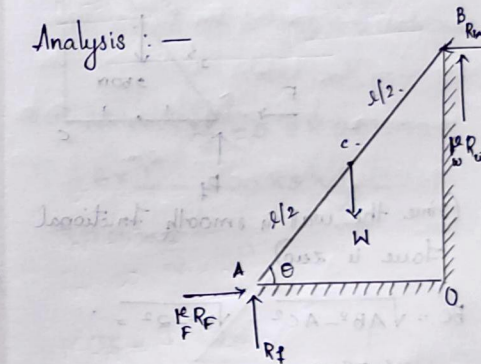 Analysis : —
B
l/2.
C.
l/2
W
A
θ
O
μF RF
Rf